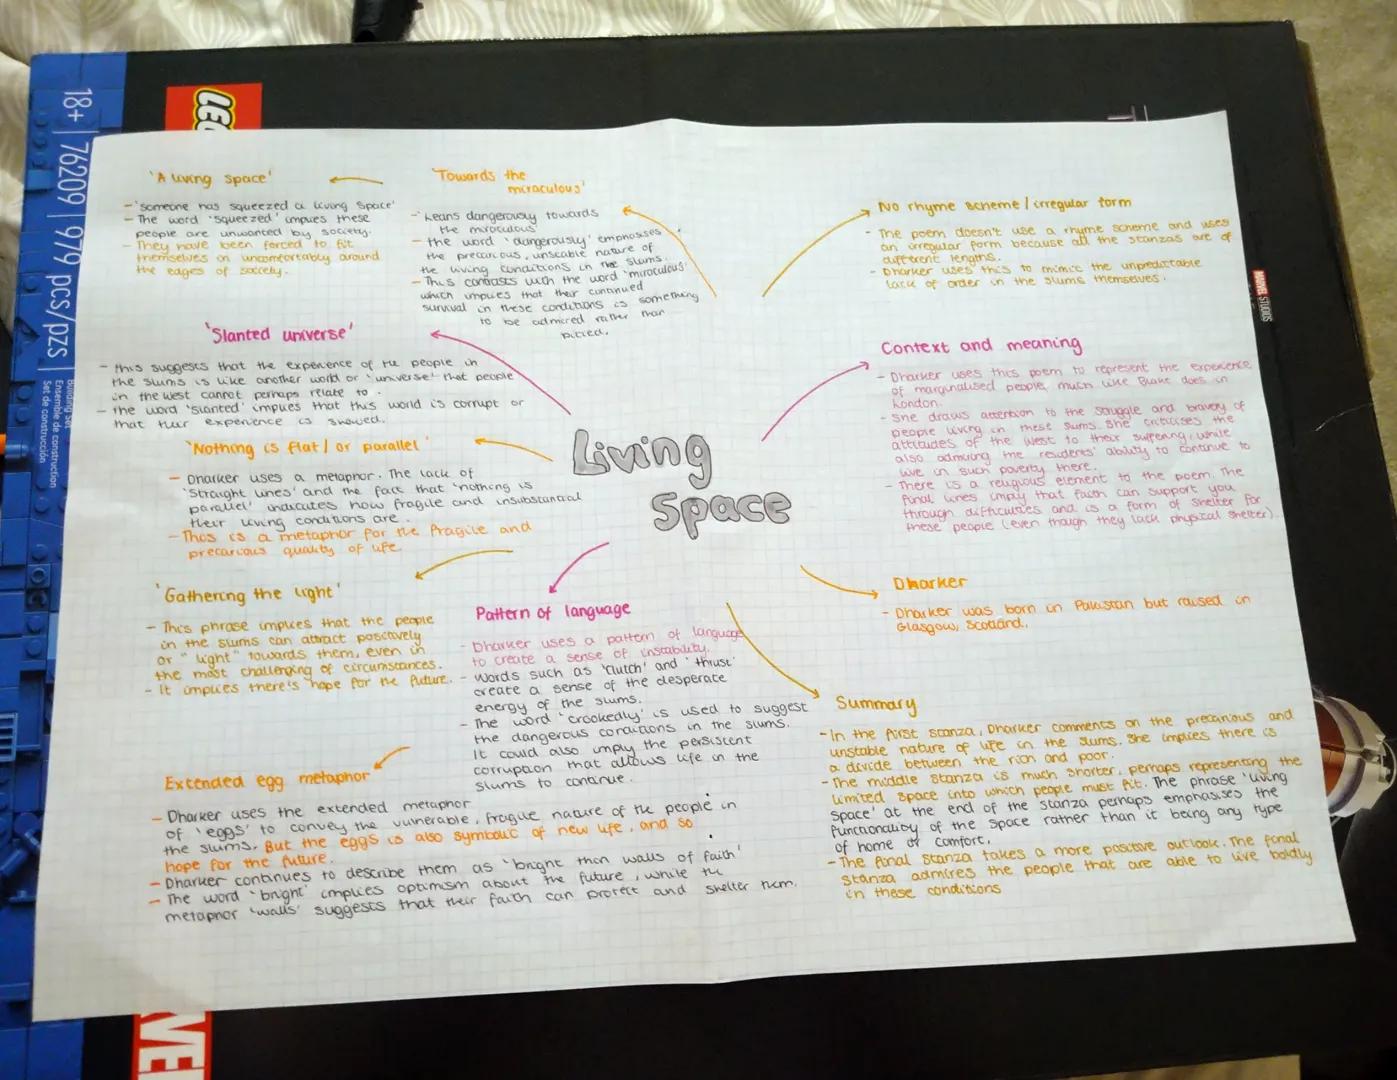 18+ | 76209 | 979 pcs/pzs
Building Set
Ensemble de construction
Set de construcción
MARVEL STUDIOS
'A living space'
- 'someone has squeezed a living space'
- The word 'squeezed' implies these
people are unwanted by society.
- They have been forced to fit
themselves on uncomfortably around
the edges of society.
'Towards the
miraculous'
- 'Leans dangerously towards
the miraculous'
- The word 'dangerously' emphasises
the precarious, unstable nature of
the living conditions in the slums.
- This contrasts with the word 'miraculous'
which implies that their continued
survival in these conditions is something
to be admired rather than
pitied.
No rhyme scheme / irregular form
- The poem doesn't use a rhyme scheme and uses
an irregular form because all the stanzas are of
different lengths.
- Dharker uses this to mimic the unpredictable
lack of order in the slums themselves.
'Slanted universe'
- this suggests that the experience of the people in
the slums is like another world or 'universe' that people
in the west cannot perhaps relate to.
- The word 'slanted' implies that this world is corrupt or
that their experience is skewed.
Context and meaning
- Dharker uses this poem to represent the experience
of marginalised people, much like Blake does in
London.
- She draws attention to the struggle and bravery of
people living in these slums. She criticises the
attitudes of the West to their suffering, while
also admiring the residents' ability to continue to
live in such poverty there.
- There is a religious element to the poem. The
final lines imply that faith can support you
through difficulties and is a form of shelter for
these people (even though they lack physical shelter).
'Nothing is flat / or parallel'
- Dharker uses a metaphor. The lack of
'straight lines' and the fact that 'nothing is
parallel' indicates how fragile and insubstantial
their living conditions are.
- This is a metaphor for the fragile and
precarious quality of life
Living
Space
'Gathering the light'
- This phrase implies that the people
in the slums can attract positively
or "light" towards them, even in
the most challenging of circumstances.
- It implies there's hope for the future.
Pattern of language
- Dharker uses a pattern of language
to create a sense of instability.
- Words such as 'clutch' and 'thrust'
create a sense of the desperate
energy of the slums.
- The word 'crookedly' is used to suggest
the dangerous conditions in the slums.
It could also imply the persistent
corruption that allows life in the
slums to continue.
Dharker
- Dharker was born in Pakistan but raised in
Glasgow, Scotland.
Summary
- In the first stanza, Dharker comments on the precarious and
unstable nature of life in the slums. She implies there is
a divide between the rich and poor.
- The middle stanza is much shorter, perhaps representing the
limited space into which people must fit. The phrase 'living
space' at the end of the stanza perhaps emphasises the
functionality of the space rather than it being any type
of home or comfort.
- The final stanza takes a more positive outlook. The final
stanza admires the people that are able to live boldly
in these conditions
Extended egg metaphor
- Dharker uses the extended metaphor
of 'eggs' to convey the vulnerable, fragile nature of the people in
the slums. But the eggs is also symbolic of new life, and so
hope for the future.
- Dharker continues to describe them as 'bright thin walls of faith'
- The word 'bright' implies optimism about the future, while the
metaphor 'walls' suggests that their faith can protect and shelter them.